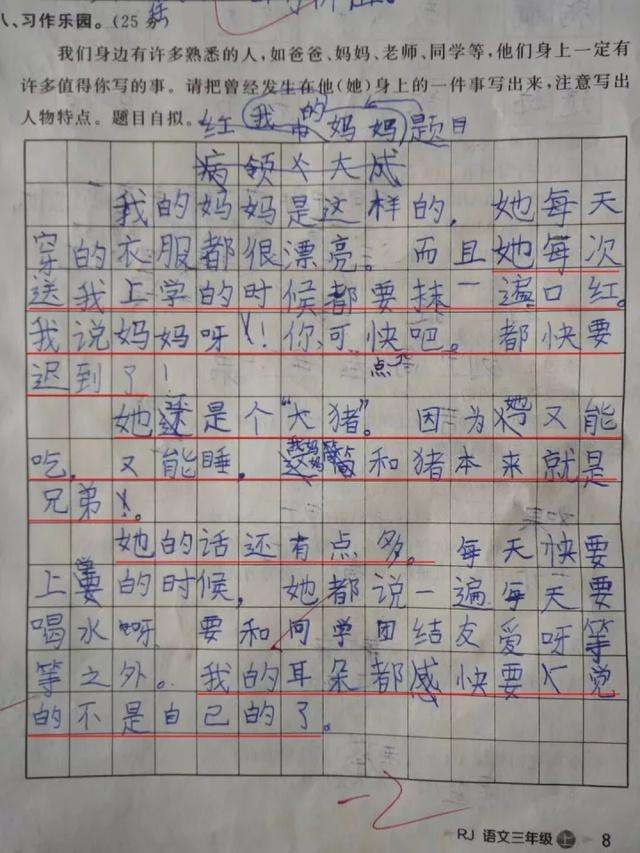 八、习作乐园。(25分)
我们身边有许多熟悉的人,如爸爸、妈妈、老师、同学等,他们身上一定有
许多值得你写的事。请把曾经发生在他(她)身上的一件事写出来,注意写出
人物特点。题目自拟。
红我的妈妈题目
病领大成
我的妈妈是这样的,她每天
穿的衣服都很漂亮。而且她每次
送我上学的时候都要抹一遍口红。
我说妈妈呀!你可快吧。都快要
点
迟到了!
她还是个“大猪”。因为她又能
吃,又能睡,我妈妈等等和猪本来就是
兄弟。
她的话还有点多。每天快要
上学的时候,她都说一遍每天要
喝水呀要和同学团结友爱呀等
等之外。我的耳朵都感快要觉
的不是自己的了。
-2
RJ 语文三年级 上 8